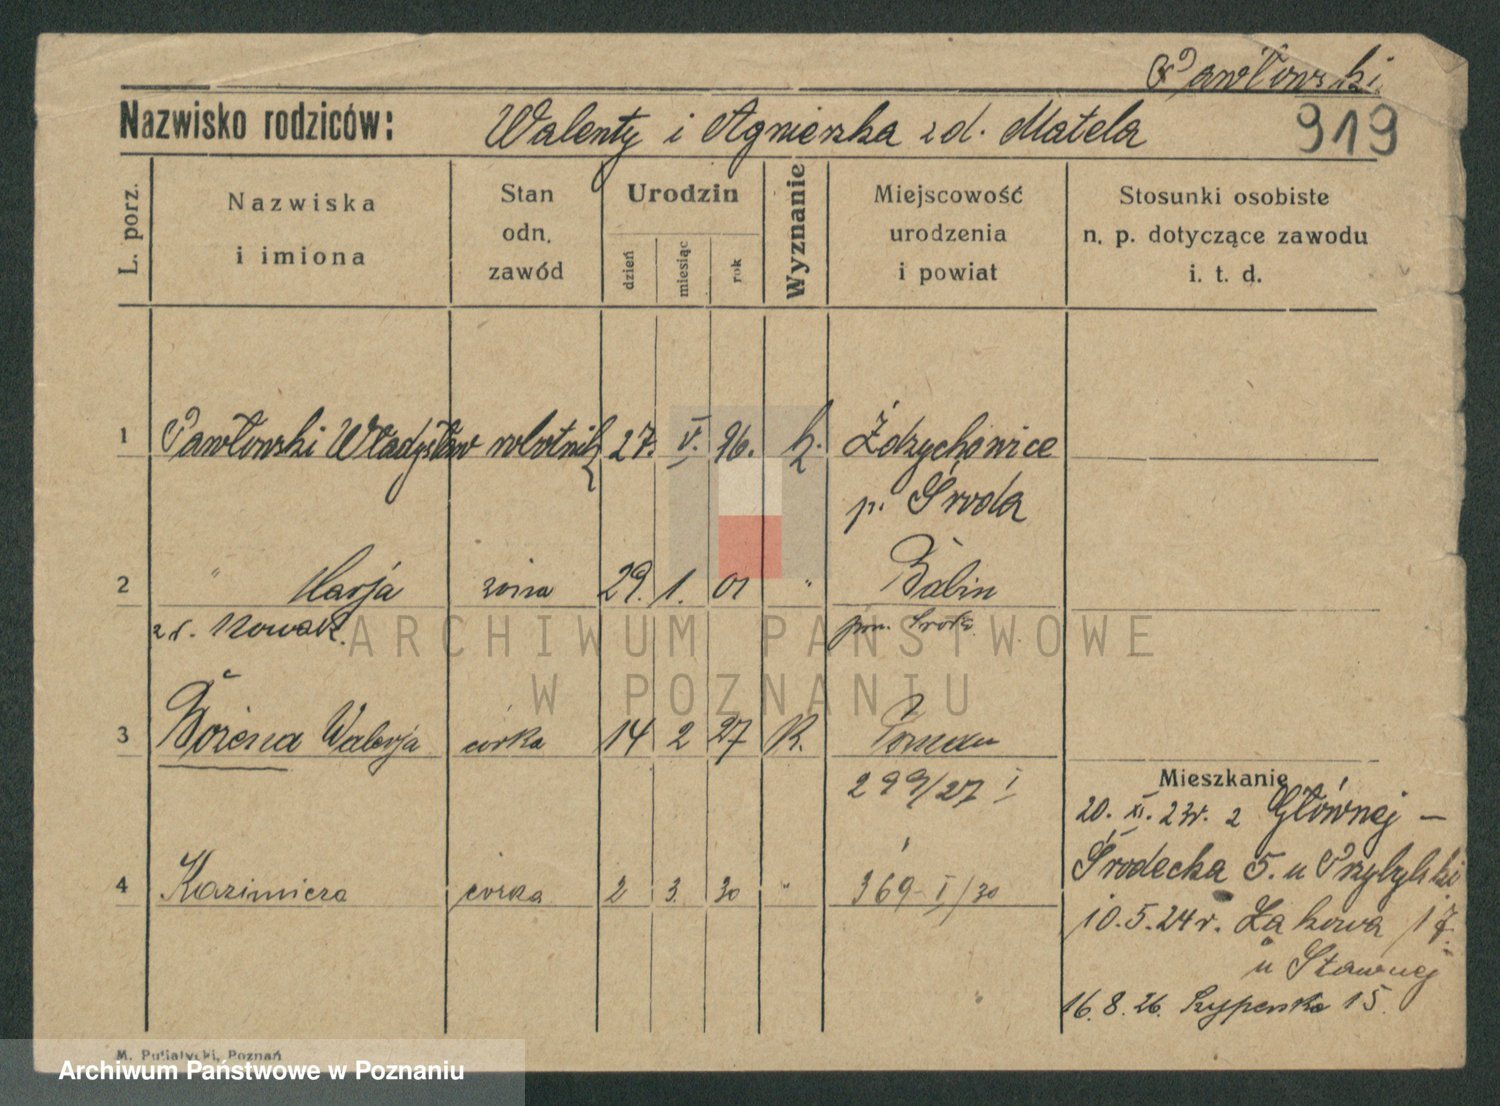 Pawłowski
Nazwisko rodziców: Walenty i Agnieszka zd. Matela 919
L. porz. Nazwiska i imiona Stan odn. zawód Urodzin dzień miesiąc rok Wyznanie Miejscowość urodzenia i powiat Stosunki osobiste n. p. dotyczące zawodu i. t. d.
1 Pawłowski Władysław robotnik 27. V. 96. k. Zdzychowice
p. Środa
2 " Marja żona 29. 1. 01 " Babin
zd. Nowak pow. Środa
3 Bożena Walerja córka 14 2 27 K. Poznań
299/27 I
Mieszkanie
20. XI. 23r. z Głównej –
Środecka 5. u Przybylski
4 Kazimiera córka 2 3. 30 " 369 - I/30
10.5.24r. Łąkowa 17
u Stawnej
16. 8. 26. Szyperska 15.
M. Putiatycki, Poznań
ARCHIWUM PAŃSTWOWE
W POZNANIU
Archiwum Państwowe w Poznaniu